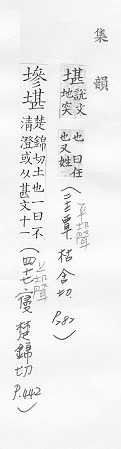 集韻
堪 說文地突也曰任也又姓(二十三覃 枯含切 P.282)
平聲
墋堪 楚錦切土也一曰不清澄或从甚文十一(四十七寑 楚錦切 P.442)
上聲